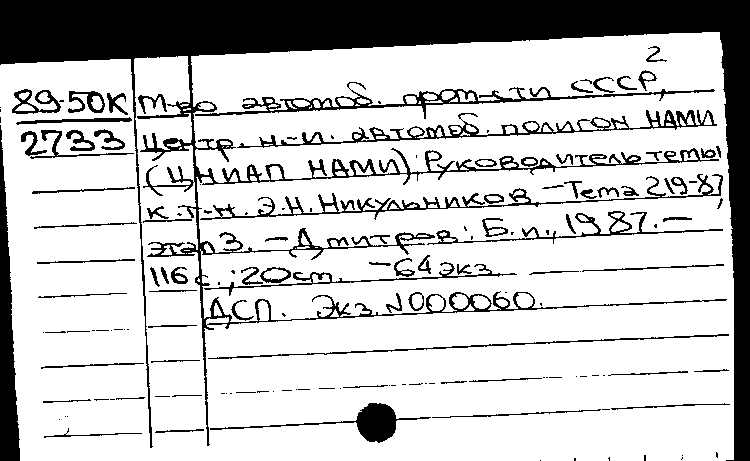 2
89-50К М-во автомоб. пром-сти СССР,
2733 Центр. н.-и. автомоб. полигон НАМИ
(ЦНИАП НАМИ); Руководитель темы
к.т.н. Э.Н. Никульников. - Тема 219-87,
этап 3. - Дмитров: Б.и., 1987. -
116 с.; 20 см. - 64 экз.
ДСП. Экз. N 000060.